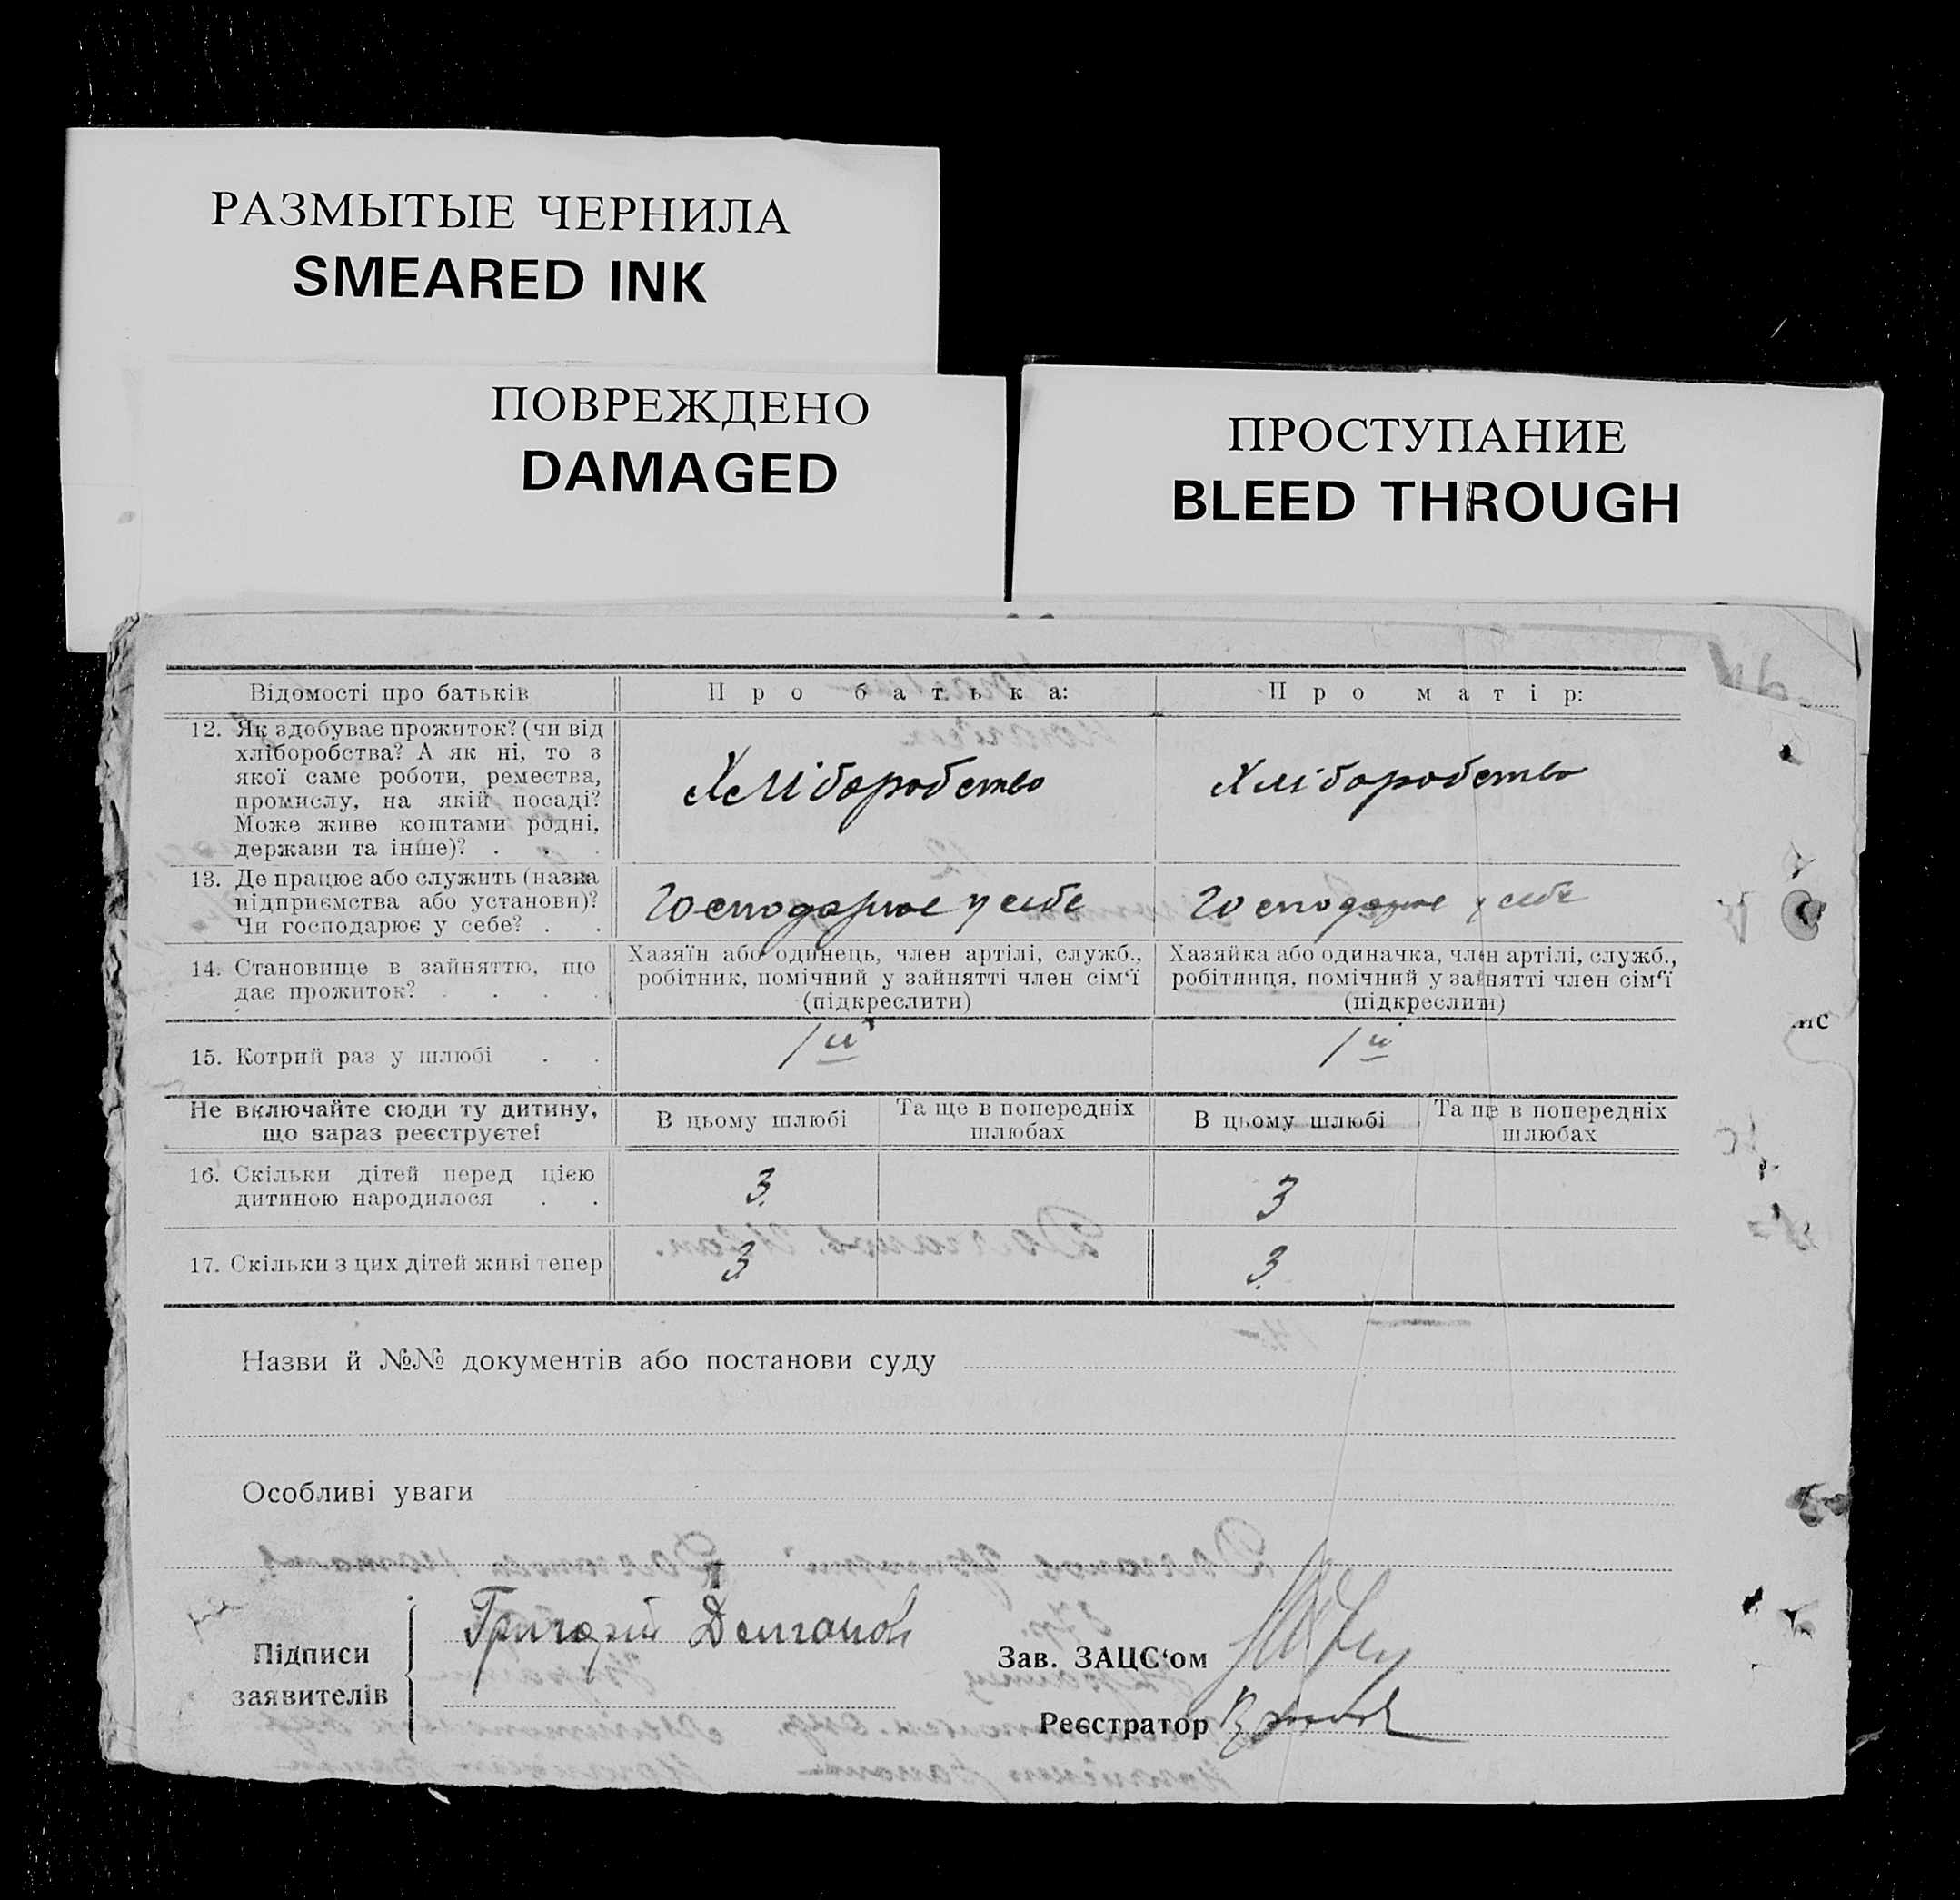 РАЗМЫТЫЕ ЧЕРНИЛА
SMEARED INK
ПОВРЕЖДЕНО
DAMAGED
ПРОСТУПАНИЕ
BLEED THROUGH
Відомості про батьків
Про батька:
Про матір:
12. Як здобуває прожиток? (чи від
хліборобства? А як ні, то з
якої саме роботи, ремества,
промислу, на якій посаді?
Може живе коштами родні,
держави та інше)? . . .
Хліборобство
Хліборобство
13. Де працює або служить (назва
підприємства або установи)?
Чи господарює у себе? . .
Господарює у себе
Господарює у себе
14. Становище в зайняттю, що
дає прожиток? . . . .
Хазяїн або одинець, член артілі, служб.,
робітник, помічний у зайнятті член сім‘ї
(підкреслити)
Хазяйка або одиначка, член артілі, служб.,
робітниця, помічний у зайнятті член сім‘ї
(підкреслити)
15. Котрий раз у шлюбі . .
1й
1й
Не включайте сюди ту дитину,
що зараз реєструєте!
В цьому шлюбі
Та ще в попередніх
шлюбах
В цьому шлюбі
Та ще в попередніх
шлюбах
16. Скільки дітей перед цією
дитиною народилося . .
3
3
17. Скільки з цих дітей живі тепер
3
3
Назви й №№ документів або постанови суду
Особливі уваги
Підписи
заявителів
Григорій
Зав. ЗАЦС‘ом
Реєстратор